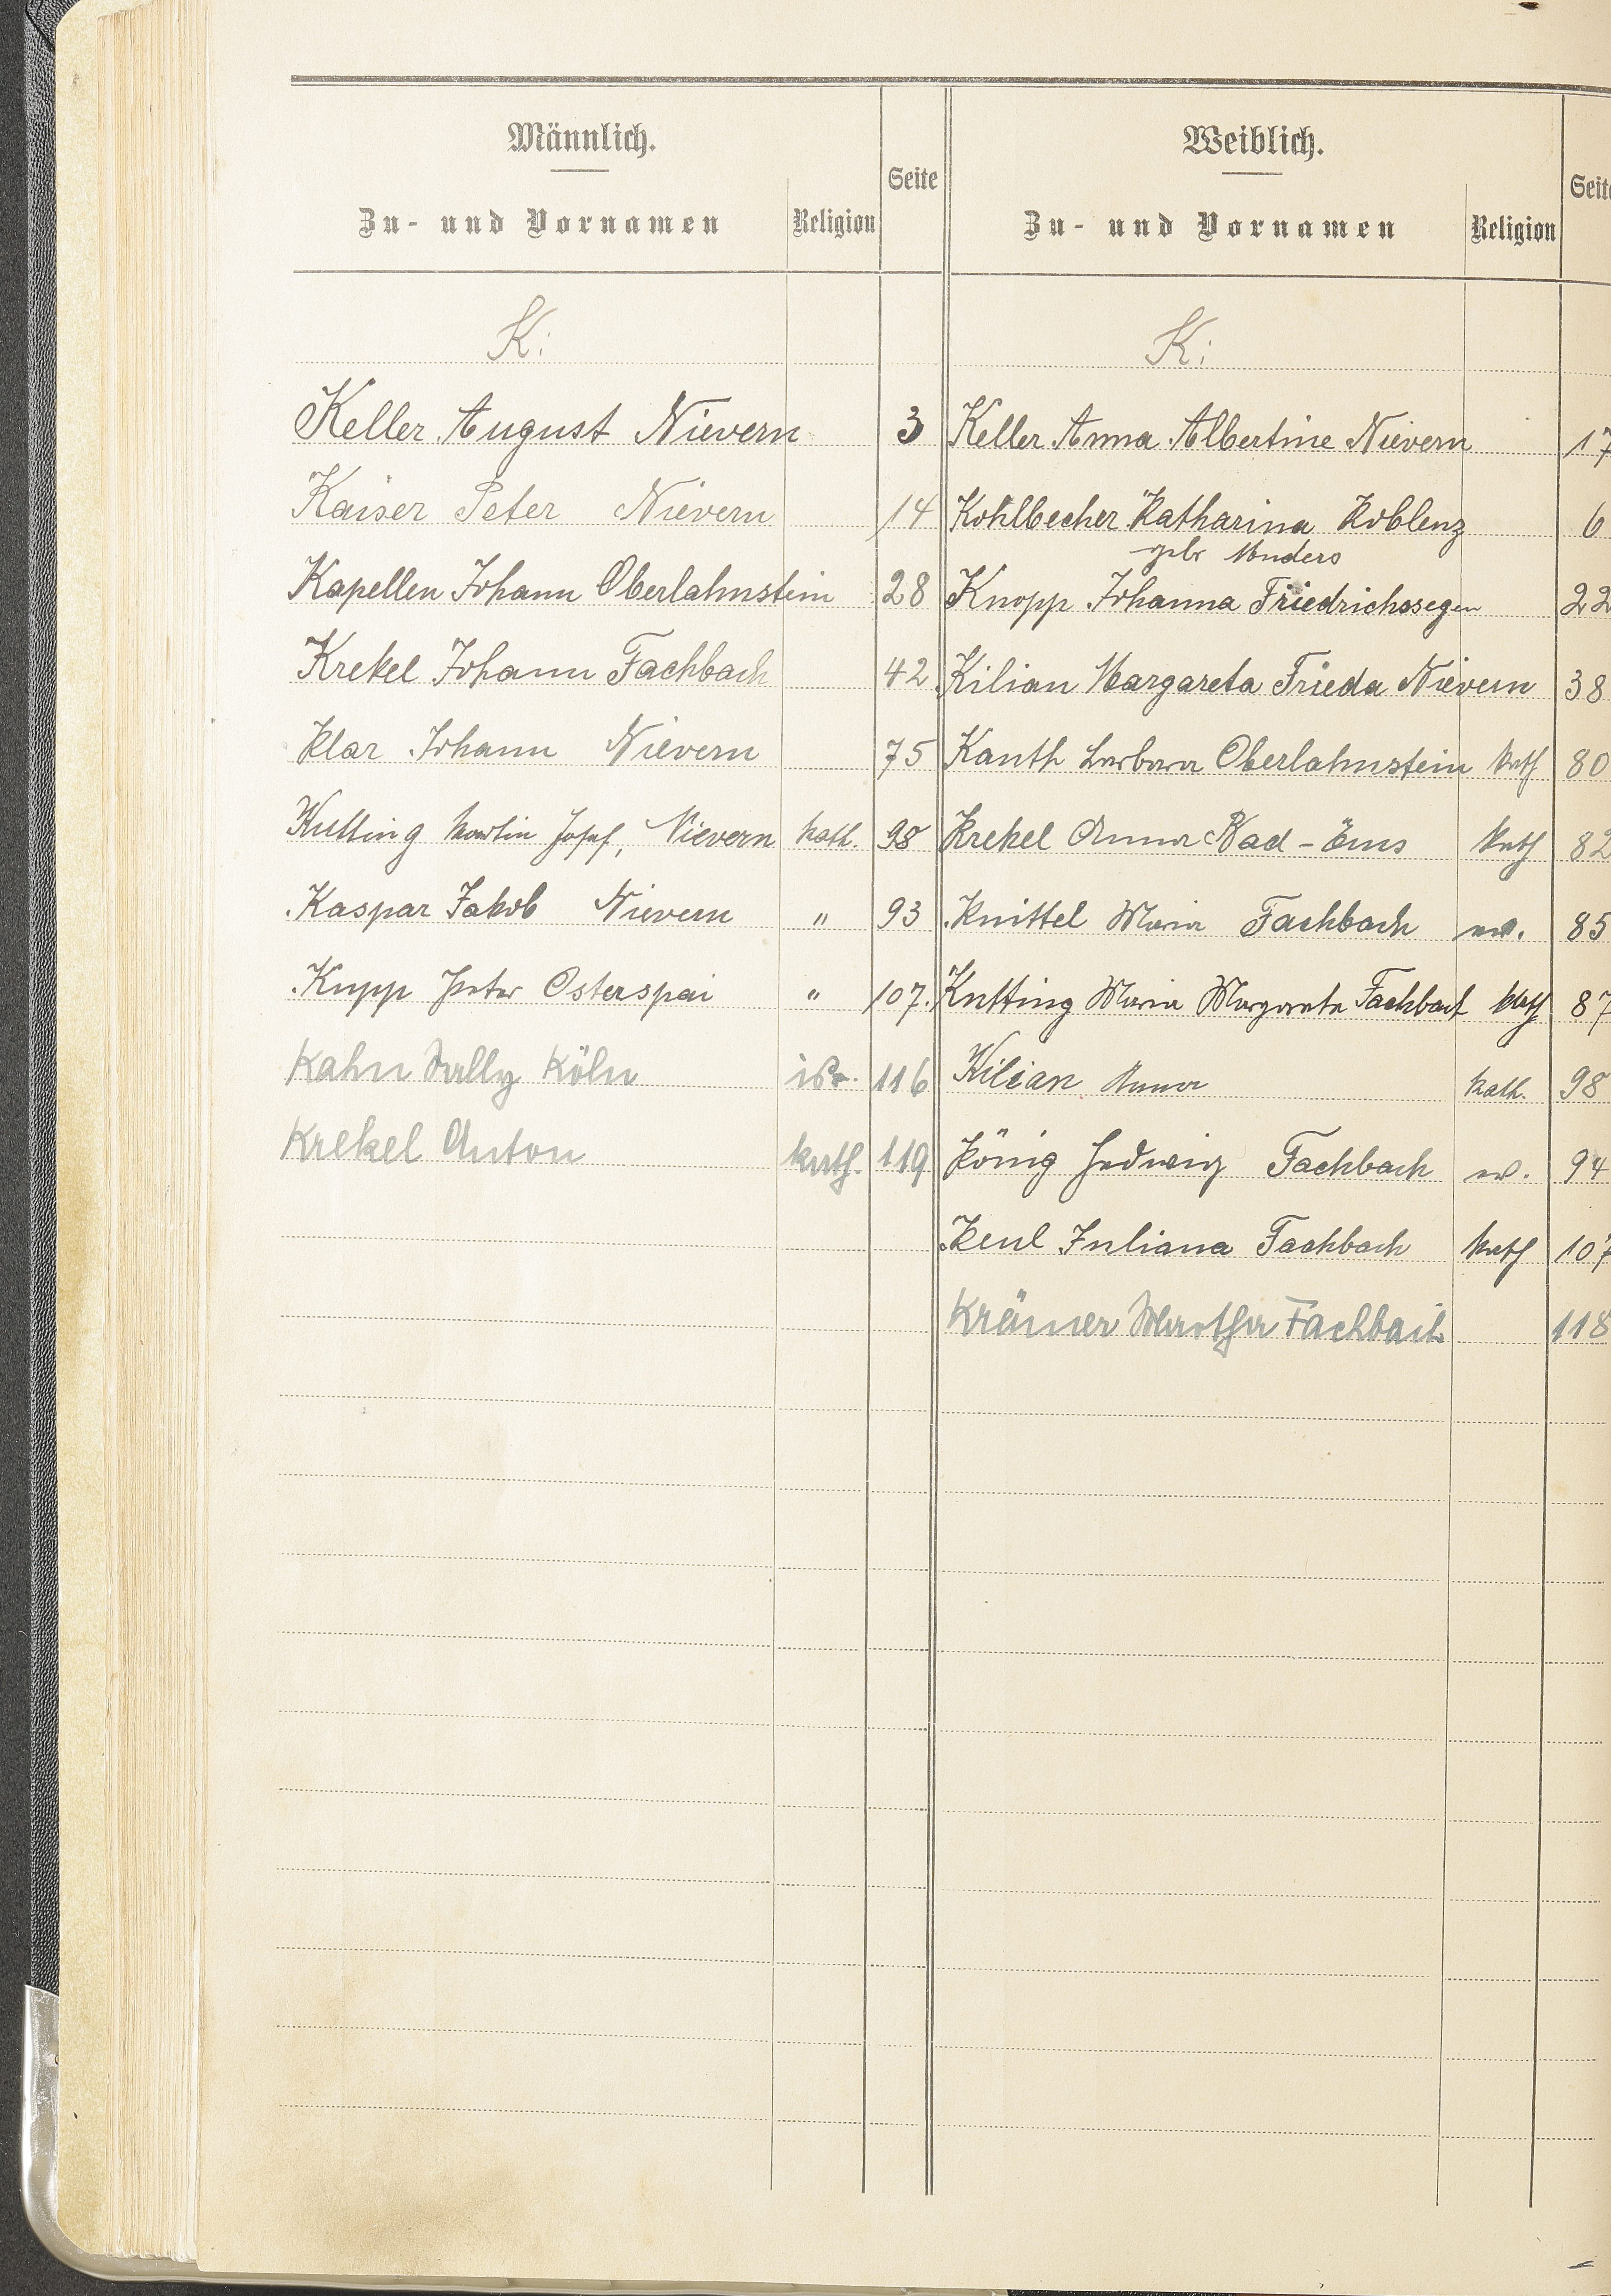 Männlich.
Zu- und Vornamen Religion Seite
K:
Keller August Nievern 3
Kaiser Peter Nievern 14
Kapellen Johann Oberlahnstein 28
Krekel Johann Fachbach 42
Klar Johann Nievern 75
Kutting Martin Josef, Nievern kath. 98
Kaspar Jakob Nievern " 93
Kupp Peter Osterspai " 107.
Kahn Sally Köln isr. 116
Krekel Anton kath. 119
Weiblich.
Zu- und Vornamen Religion Seite
K:
Keller Anna Albertine Nievern 17
Kohlbecher Katharina Koblenz 6
geb
Knopp Johanna Friedrichssegen 22
Kilian Margareta Frieda Nievern 38
Kanth Barbara Oberlahnstein kath 80
Krekel Anna Bad-Ems kath 82
Knittel Maria Fachbach ev. 85
Kutting Maria Margareta Fachbach kath 87
Kilian Anna kath. 98
König Hedwig Fachbach ev. 94
Keul Juliana Fachbach kath 107
Krämer Martha Fachbach 118